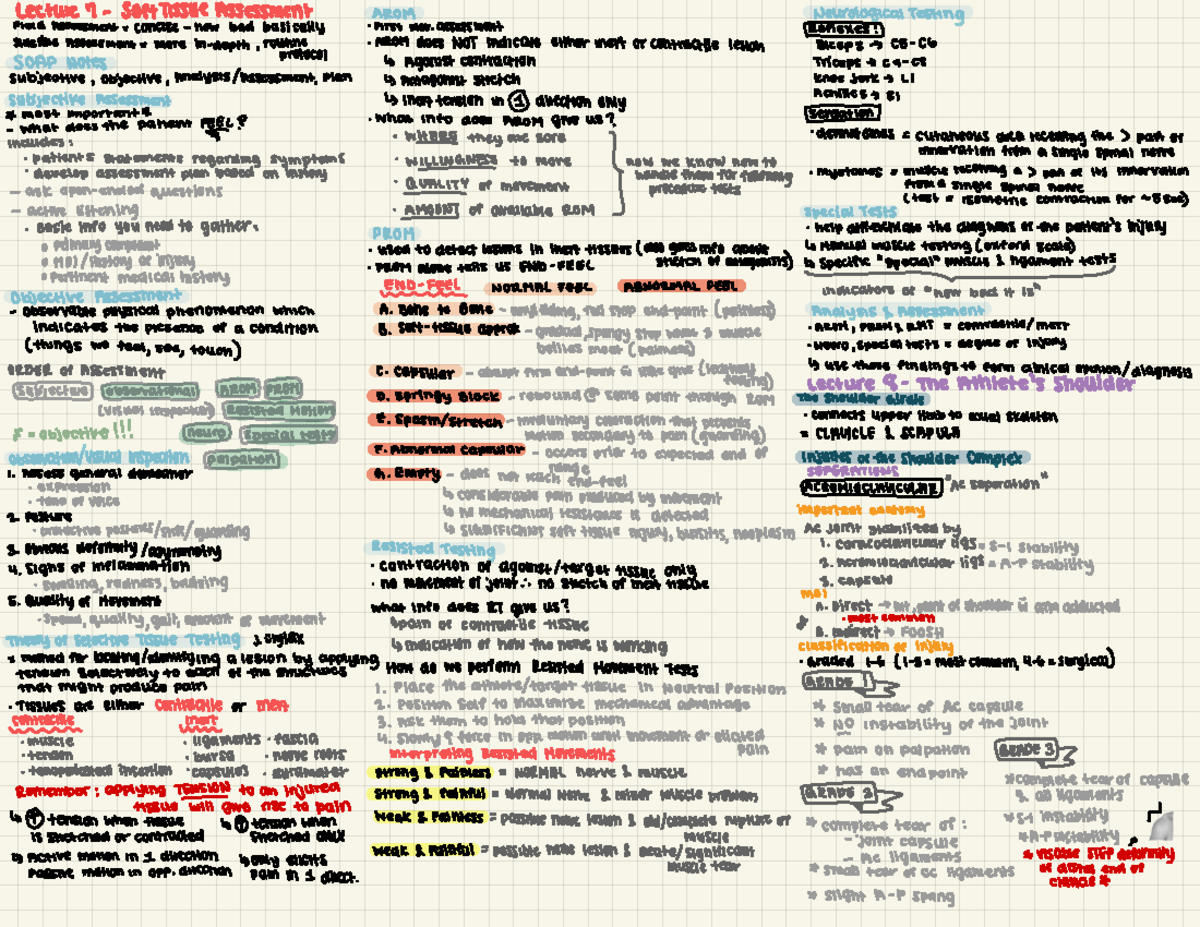 Lecture 7 - Soft Tissue Assessment
Field Assessment = concise - how bad basically
Sideline Assessment = more in-depth, routine
protocol
SOAP Notes
Subjective, Objective, Analysis/Assessment, Plan
Subjective Assessment
* most important *
- What does the patient FEEL?
Includes:
· patients statements regarding symptoms
· develop assessment plan based on history
- ask open-ended questions
- active listening
· Basic info you need to gather:
* Primary complaint
* MOI/history of injury
* Pertinent medical history
Objective Assessment
- Observable physical phenomenon which
indicates the presence of a condition
(things we feel, see, touch)
ORDER OF ASSESSMENT
Subjective Observational AROM PROM
(visual inspection) Resisted Motion
F = objective!!! neuro special tests
Observation/Visual Inspection palpation
1. Assess general demeanor
· expression
· tone of voice
2. Posture
· protective posture/gait/guarding
3. Obvious deformity/asymmetry
4. Signs of inflammation
· Swelling, redness, bruising
5. Quality of Movement
· Speed, quality, gait, amount of movement
Theory of Selective Tissue Testing
* method for locating/identifying a lesion by applying
tension selectively to each of the structures
that might produce pain
· Tissues are either contractile or inert
contractile inert
· muscle · ligaments · fascia
· tendon · bursa · nerve roots
· tenoperiosteal insertion · capsules · dura mater
Remember: applying TENSION to an injured
tissue will give rise to pain
↳ ↑ tension when tissue ↳ ↑ tension when
is stretched or contracted stretched ONLY
↳ Active motion in 1 direction ↳ only elicits
Passive motion in opp. direction pain in 1 direct.
AROM
· First mvr. assessment
· AROM does NOT indicate either inert or contractile lesion
↳ Agonist contraction
↳ Antagonist stretch
↳ inert tension in 1 direction only
· What info does AROM give us?
· WHERE they are sore
· WILLINGNESS to move
· QUALITY of movement
· AMOUNT of available ROM
now we know how to
handle them for following
procedure tests
PROM
· used to detect lesions in inert tissues (also gives info about
stretch of antagonists)
· PROM alone tells us END-FEEL
END-FEEL NORMAL FEEL ABNORMAL FEEL
A. Bone to Bone - unyielding, full stop end-point (painless)
B. Soft-tissue approx - gradual, spongy stop when 2 muscle
bellies meet (painless)
C. Capsular - abrupt firm end-point
D. Springy Block - rebound @ some point through ROM
E. Spasm/Stretch - involuntary contraction that prevents
motion secondary to pain (guarding)
F. Abnormal Capsular - occurs prior to expected end of
range
G. Empty - does not reach end-feel
↳ considerable pain produced by movement
↳ no mechanical resistance is detected
↳ significant soft tissue injury, bursitis, neoplasm
Resisted Testing
· contraction of agonist/target tissue only
· no movement of joint ∴ no stretch of inert tissue
What info does RT give us?
↳ pain of contractile tissue
↳ indication of how the nerve is working
How do we perform Resisted Movement Tests
1. Place the athlete/target tissue in Neutral Position
2. Position self to maximize mechanical advantage
3. Ask them to hold that position
4. Slowly ↑ force in opp. motion until movement or elicited
pain
Interpreting Resisted Movements
Strong & Painless = NORMAL nerve & muscle
Strong & Painful = Normal Nerve & minor muscle problem
Weak & Painless = possible nerve lesion & old/complete rupture of
muscle
Weak & Painful = possible nerve lesion & acute/significant
muscle tear
Neurological Testing
Reflexes:
Biceps → C5-C6
Triceps → C7-C8
Knee jerk → L1
Achilles → S1
Sensation
· dermatomes = cutaneous area receiving the > part of
innervation from a single spinal nerve
· myotomes = muscle receiving a > part of its innervation
from a single spinal nerve
(test = isometric contraction for ~5 sec)
Special Tests
· help differentiate the diagnosis of the patient's injury
↳ Manual muscle testing (oxford scale)
↳ Specific "special" muscle & ligament tests
indicators of "how bad it is"
Analysis & Assessment
· AROM, PROM & RMT = contractile/inert
· Neuro, special tests = degree of injury
↳ use these findings to form clinical opinion/diagnosis
Lecture 8 - The Athlete's Shoulder
The Shoulder Girdle
· connects upper limb to axial skeleton
= CLAVICLE & SCAPULA
Injuries of the Shoulder Complex
SEPARATIONS
ACROMIOCLAVICULAR "AC separation"
important anatomy
AC joint stabilized by
1. coracoclavicular ligs = S-I stability
2. acromioclavicular ligs = A-P stability
3. capsule
MOI
A. Direct → hit, point of shoulder w arm adducted
· most common
B. Indirect → FOOSH
Classification of Injury
· Graded 1-6 (1-3 = most common, 4-6 = surgical)
GRADE 1
* Small tear of AC capsule
* NO instability of the joint
* pain on palpation
* has an endpoint
GRADE 2
* complete tear of:
- joint capsule
- AC ligaments
* small tear of CC ligaments
* slight A-P spring
GRADE 3
* complete tear of capsule
& all ligaments
* S-I instability
* A-P instability
* visible STEP deformity
of distal end of
clavicle *